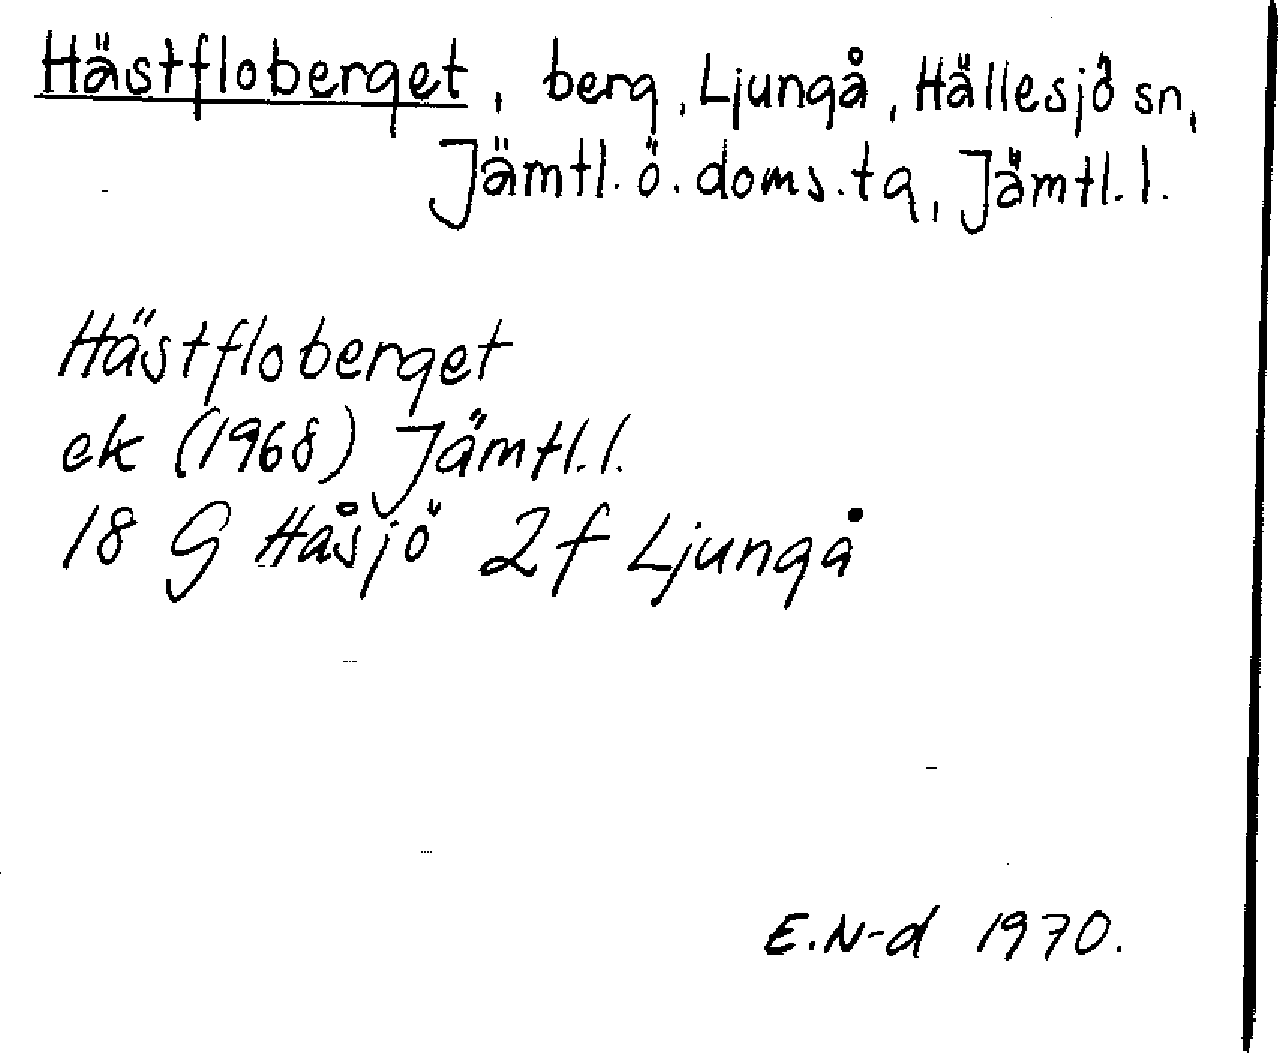 Hästfloberget, berg, Ljungå, Hällesjö sn,
Jämtl. ö. doms.tg, Jämtl. l.
Hästfloberget
ek (1968) Jämtl. l.
18 G Håsjö 2f Ljungå
E.N-d 1970.